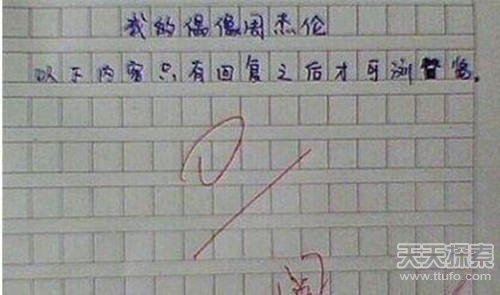 我的偶像周杰伦
以下内容只有回复之后才可浏览。
阅
天天探索
www.ttufo.com